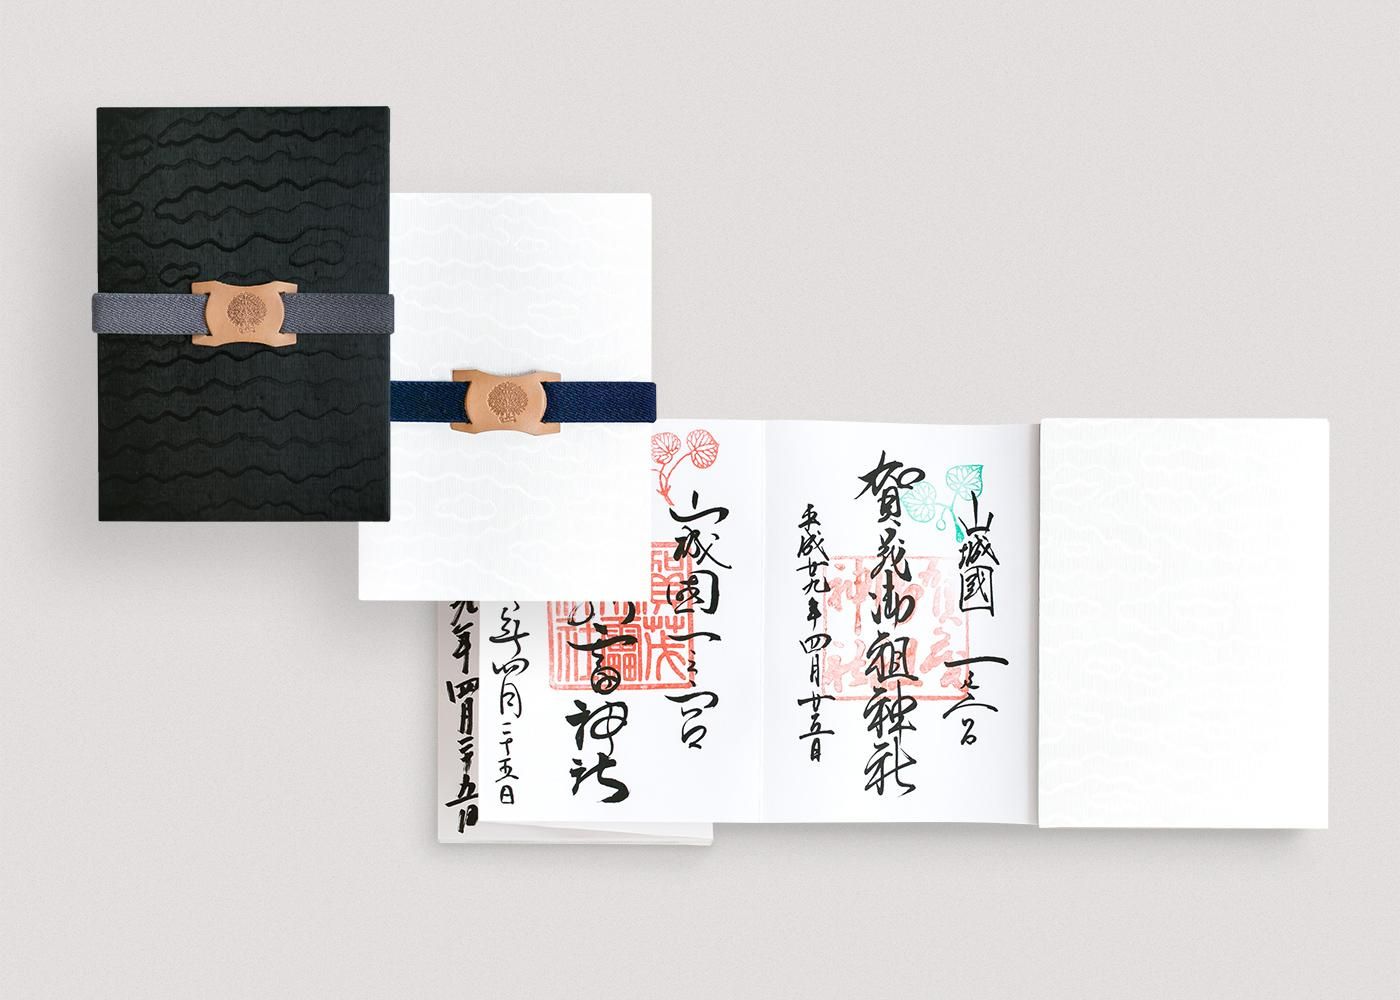 山城國
一之宮
賀茂御祖神社
平成廿九年四月廿五日
山城國一之宮
雷神社
年四月二十五日
九年四月二十五日